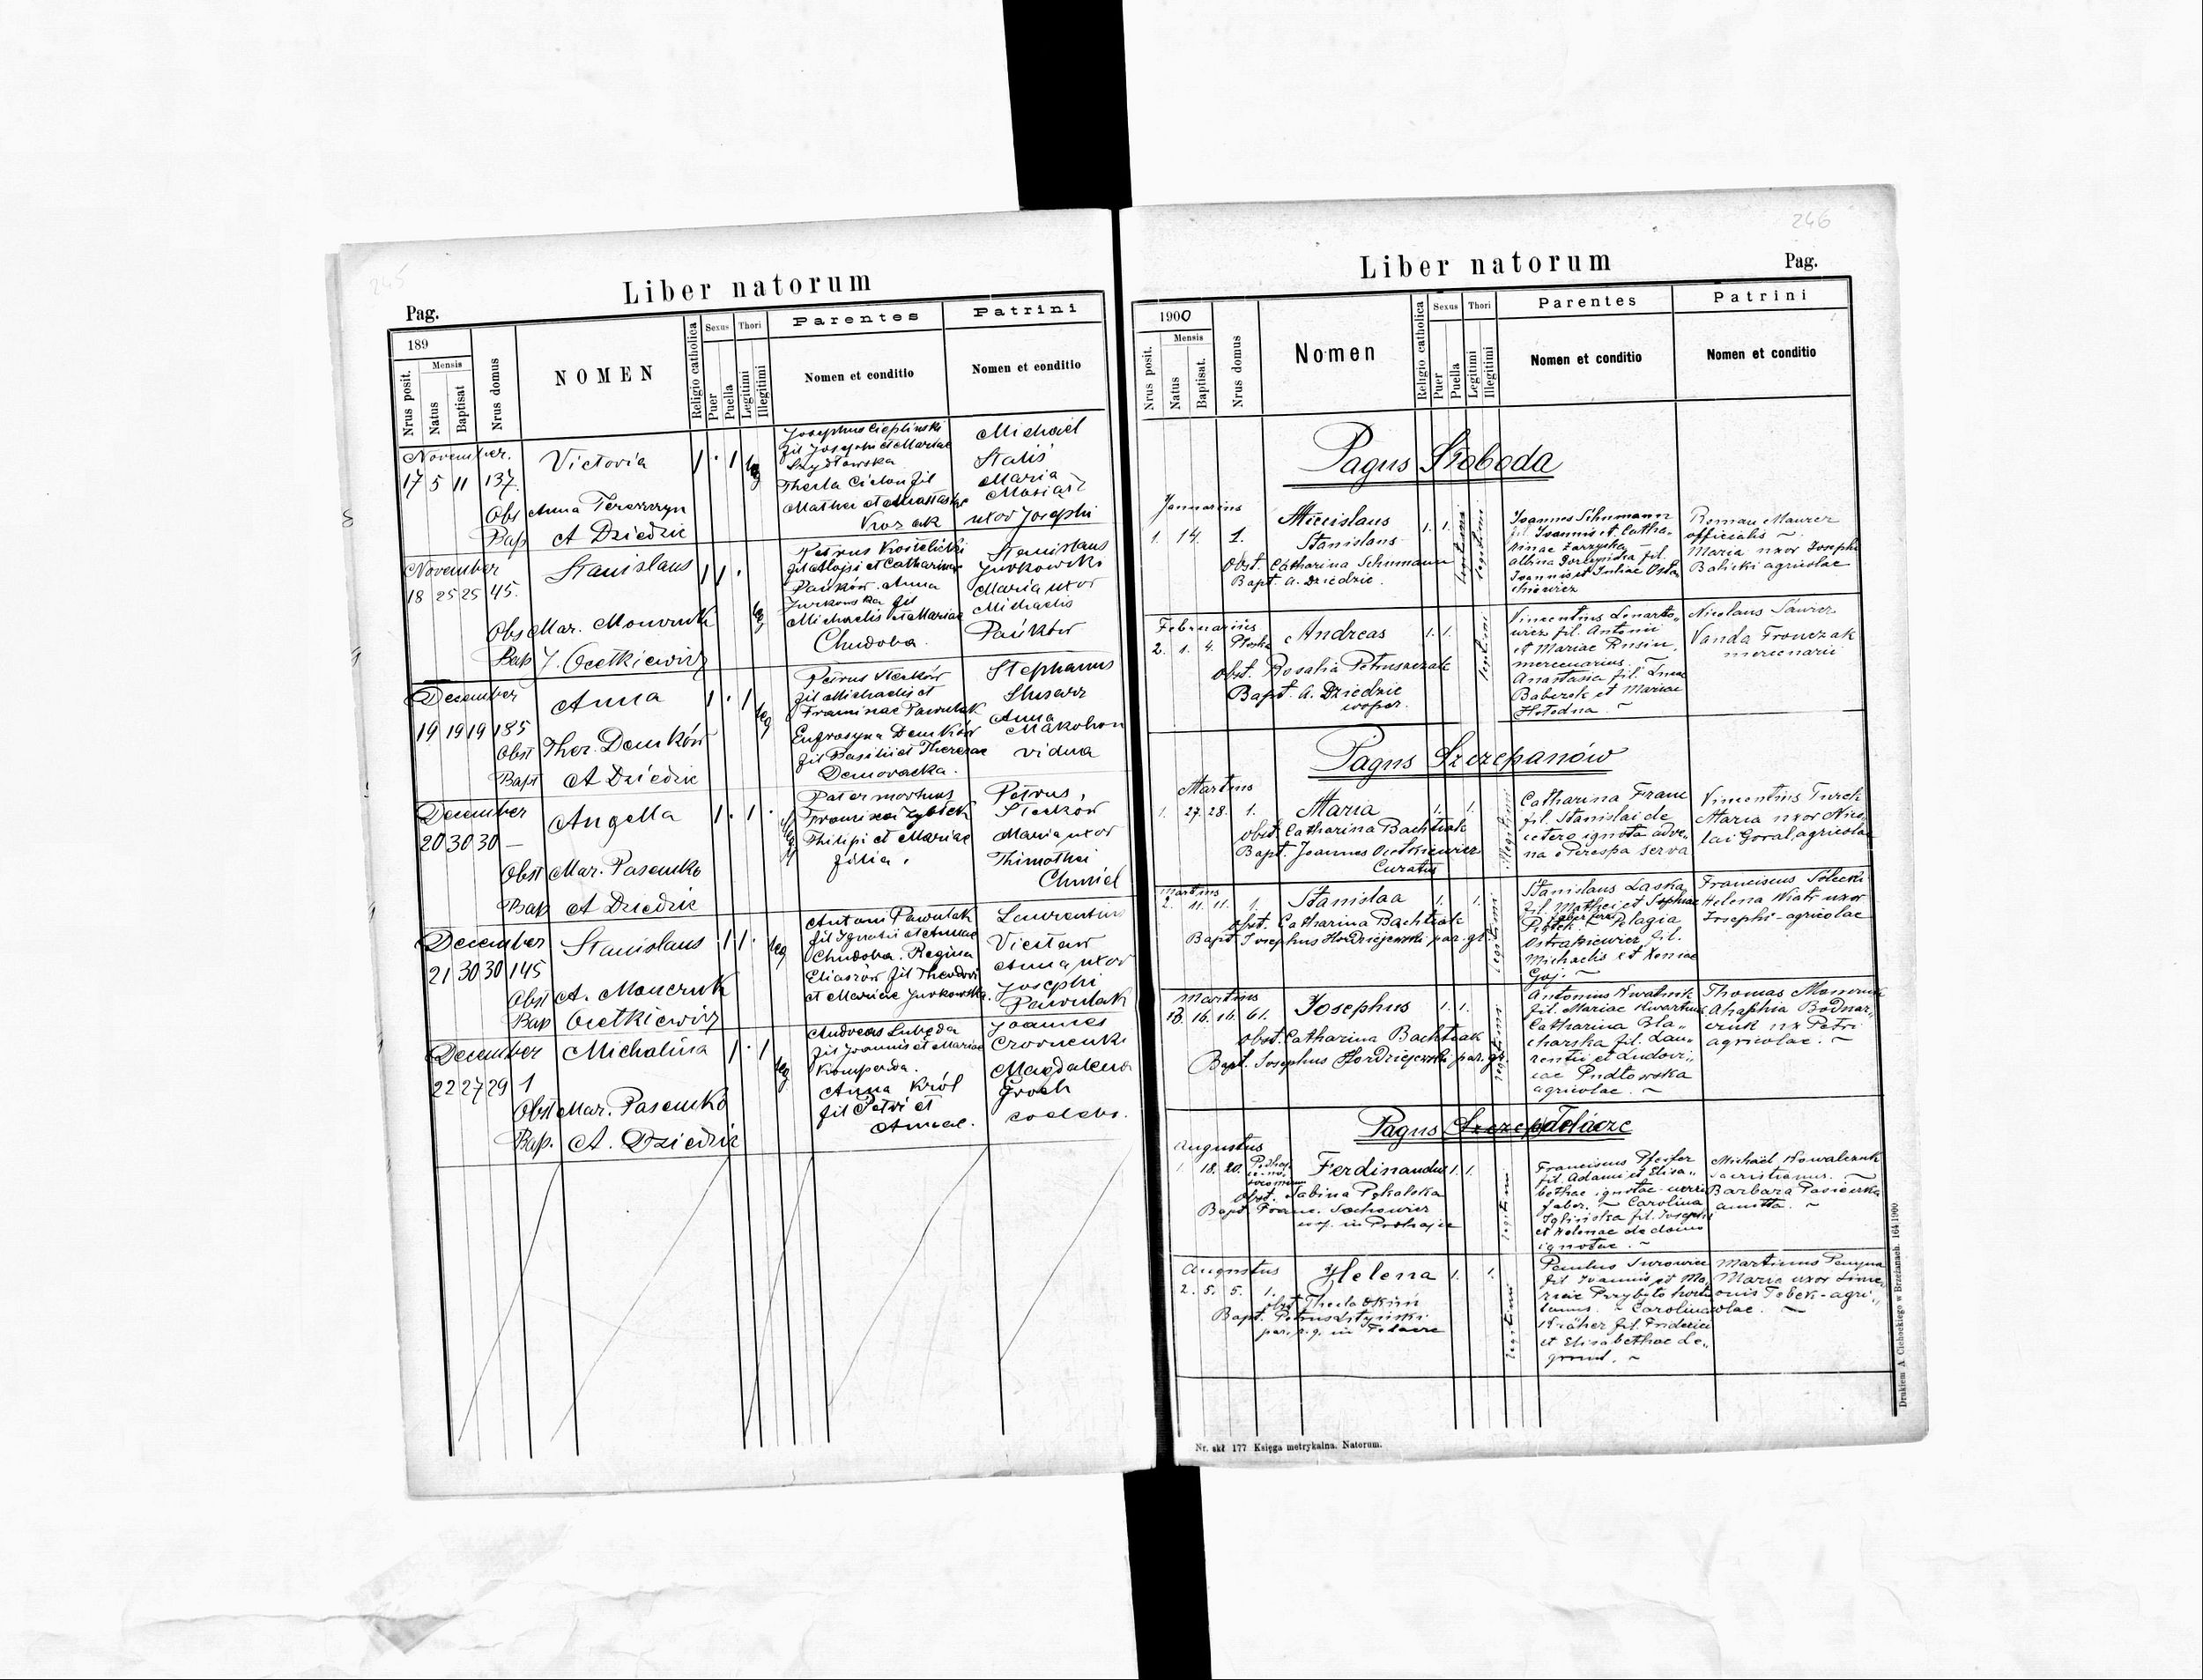 245
Liber natorum
Pag.
189
Nrus posit.
Mensis
Natus
Baptisat
Nrus domus
NOMEN
Religio catholica
Sexus
Puer
Puella
Thori
Legitimi
Illegitimi
Parentes
Nomen et conditio
Patrini
Nomen et conditio
November.
17 5 11 137.
Victoria
1 . 1
leg
Obs Anna
Bap A Dziedzic
Josephus Cieplinski
fil Josephi et Mariae
Szydłowska
Thecla fil
Mathei et Anastasiae
Kozak
Michael
Maria
uxor Josephi
November
18 25 25 45.
Stanislaus
1 1 .
leg
Obs Mar. Monczuk
Bap J. Ocetkiewicz
Petrus
fil Aloysi et Catharinae
Pańków. Anna
Jurkowska fil
Michaelis et Mariae
Chudoba.
Stanislaus
Jurkowski
Maria uxor
Michaelis
Pańków
December
19 19 19 185
Anna
1 . 1
leg
Obst Ther. Demków
Bapt A Dziedzic
Petrus Steków
fil Michaelis et
Franciscae Pawulak
Eufrosyna Demków
fil Basilii et Theresae
Demovacka.
Stephanus
Slusarz
Anna
Makohon
vidua
December
20 30 30 —
Angella
1 . 1 .
Obst Mar. Pasemko
Bap A Dziedzic
Pater mortuus
Philipi et Mariae
filia.
Petrus
Steków
Maria uxor
Thimothei
Chmiel
December
21 30 30 145
Stanislaus
1 1 .
leg
Obst A. Monczuk
Bap Ocetkiewicz
Antoni Pawulak
fil Ignatii et Annae
Chudoba. Regina
Eliaszów fil Theodori
et Mariae Jurkowska.
Laurentius
Anna uxor
Josephi
Pawulak
December
22 27 29 1
Michalina
1 . 1
leg
Obst Mar. Pasemko
Bap. A. Dziedzic
Andreas Lubęda
fil Joannis et Mariae
Komperda.
Anna Król
fil Petri et
Annae.
Joannes
Magdalena
Groch
coelebs.
246
Liber natorum
Pag.
1900
Nrus posit.
Mensis
Natus
Baptisat.
Nrus domus
Nomen
Religio catholica
Sexus
Puer
Puella
Thori
Legitimi
Illegitimi
Parentes
Nomen et conditio
Patrini
Nomen et conditio
Pagus Słoboda
Januarius
1. 14. 1.
Miecislaus
Stanislaus
1. 1.
legitimi
Obst. Catharina Schumann
Bapt. A. Dziedzic.
Joannes Schumann
fil. Joannis et Catha-
rinae Zarzycka
Albina fil.
Joannis et Juliae
Roman Maurer
officialis ~
Maria uxor Josephi
Balicki agricolae
Februarius
2. 1. 4.
Andreas
1. 1.
legitimi
obst. Rosalia Petruszczak
Bapt. A. Dziedzic
cooper.
Vincentius
fil. Antonii
et Mariae Rusin,
mercenarius. ~
Anastasia fil. Lucae
et Mariae
Hołodna. ~
Nicolaus Sawicz
Vanda Fronczak
mercenarii
Pagus Szczepanów
Martius
1. 27. 28. 1.
Maria
1. 1.
illegitimi
obst. Catharina Bachtiak
Bapt. Joannes
Curatus
Catharina Franc
fil. Stanislai de
cetero ignota adve-
na e Perespa serva
Vincentius Turek
Maria uxor Nico-
lai Goral, agricolae
Martius
2. 11. 11. 1.
Stanislaa
1. 1.
legitimi
obst. Catharina Bachtiak
Bapt. Josephus Hordziejewski par. gr.
Stanislaus Laska
fil. Mathei et Sophiae
Piątek. Pelagia
Ostrapiewicz fil.
Michaelis et Xeniae
Gaj. ~
Franciscus Solecki
Helena Wiatr uxor
Josephi - agricolae
Martius
3. 16. 16. 61.
Josephus
1. 1.
legitimi
obst. Catharina Bachtiak
Bapt. Josephus Hordziejewski par. gr.
Antonius Kwatnik
fil. Mariae
Catharina Bla-
charska fil. Lau-
rentii et Ludovi-
cae Pudłowska
agricolae. ~
Thomas Monczuk
Ahaphia Bodnar-
czuk ux Petri
agricolae. ~
Pagus Telacze
Augustus
1. 18. 20.
Ferdinandus
1. 1.
legitimi
Obst. Sabina Pękalska
Bapt. Franc. Sochowicz
coop. in Podhajce
Franciscus Pfeifer
fil. Adami et Elisa-
bethae ignotae
faber. ~ Carolina
fil. Josephi
et Helenae de domo
ignotae. ~
Michael Kowalczuk
sacristianus. ~
Barbara Pasiecka
amitta. ~
Augustus
2. 5. 5. 1.
Helena
1. 1.
legitimi
obst. Thecla
Bapt. Petrus
par. r. g. in Telacze
Paulus Surowiec
fil. Joannis et Ma-
riae Przybyło
Carolina
Kräher fil. Friderici
et Elisabethae Le-
grund. ~
Martinus
Maria uxor Sime-
onis Tobek - agri-
colae. ~
Nr. skł 177 Księga metrykalna. Natorum.
Drukiem A. Cichockiego w Brzeżanach. 164/1900